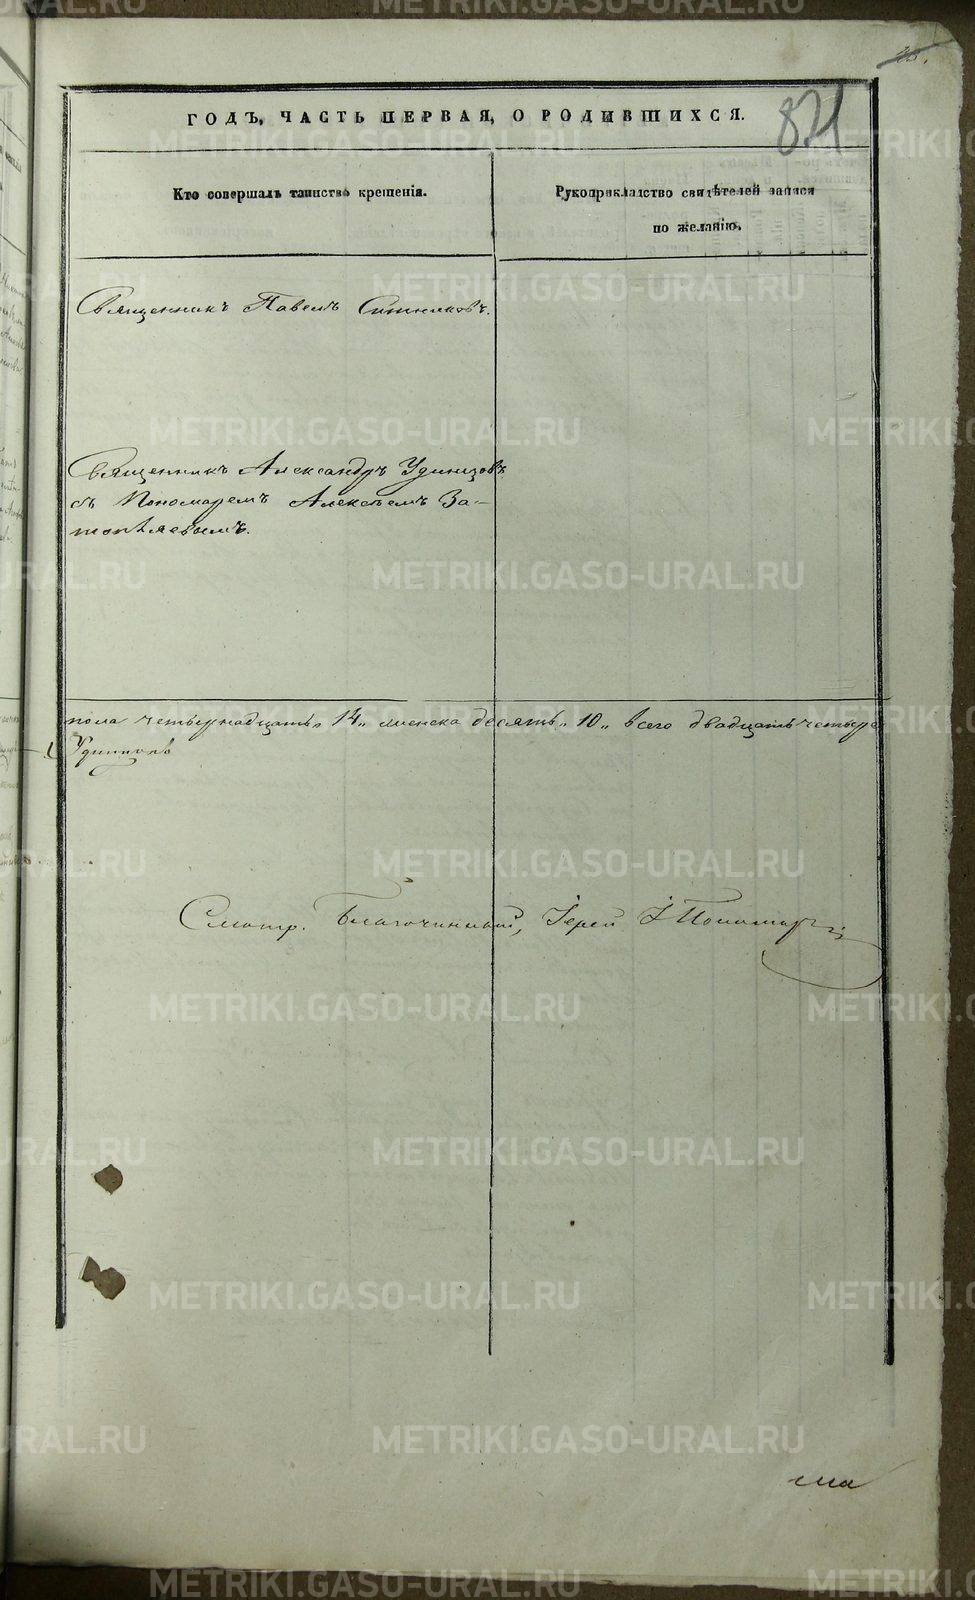 821
ГОДЪ, ЧАСТЬ ПЕРВАЯ, О РОДИВШИХСЯ.
Кто совершалъ таинство крещенія.
Рукоприкладство свидѣтелей записи
по желанію.
Священникъ Павелъ Ситниковъ.
Священникъ Александръ Удинцовъ
съ Пономаремъ Алексѣемъ За-
топляевымъ.
пола четырнадцать „14„ женска десять „10„ всего двадцать четыре
Удинцовъ
Смотр. Благочинный, Іерей І Пономар
METRIKI.GASO-URAL.RU